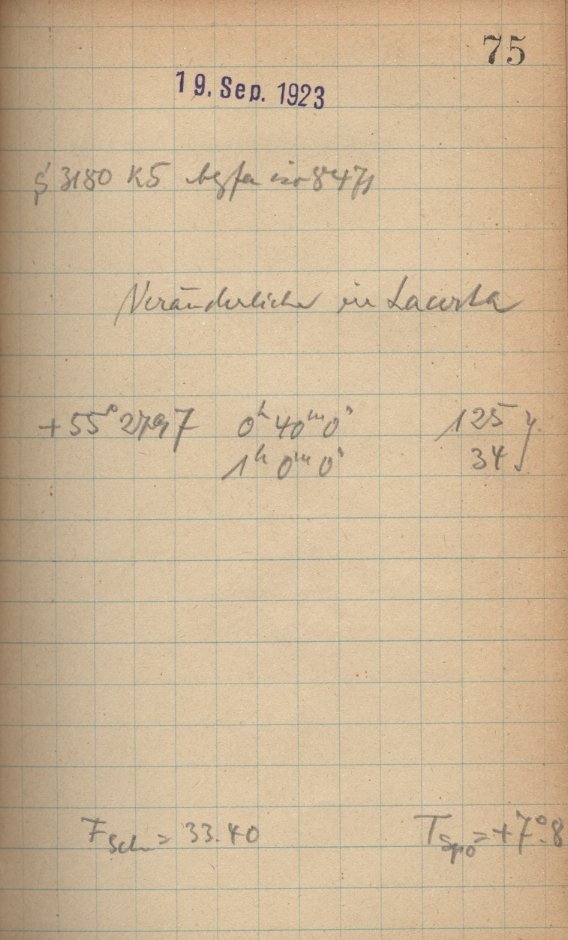 75
19. Sep. 1923
§ 3180 K5
Veränderliche in Lacerta
+55° 2797 0ʰ 40ᵐ 0ˢ 125
1ʰ 0ᵐ 0ˢ 34
F Sch = 33.40 T Spo = +7°.8